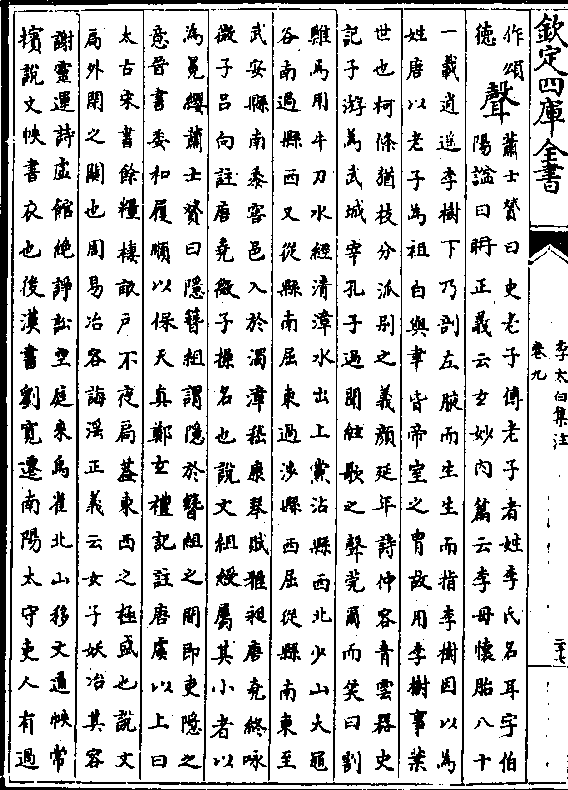 欽定四庫全書
李太白集注
卷九
二十七
作頌
德
聲
蕭士贇曰史老子傳老子者姓李氏名耳字伯
陽諡曰耼正義云玄妙內篇云李母懷胎八十
一載逍遥李樹下乃剖左腋而生生而指李樹因以為
姓唐以老子為祖白與韋皆帝室之胄故用李樹事葉
世也柯條猶枝分派别之義顔延年詩仲容青雲器史
記子游為武城宰孔子過聞絃歌之聲莞爾而笑曰割
雞焉用牛刀水經清漳水出上黨沾縣西北少山大黽
谷南過縣西又從縣南屈東過涉縣西屈從縣南東至
武安縣南黍窖邑入於濁漳嵇康琴賦雅昶唐堯終咏
微子吕向註唐堯微子操名也說文組綬屬其小者以
為冕纓蕭士贇曰隱簪組謂隱於簪組之間即吏隱之
意晉書委和履順以保天真鄭玄禮記註唐虞以上曰
太古宋書餘糧棲畝戶不夜扃葢東西之極盛也說文
扃外閉之關也周易冶容誨淫正義云女子妖冶其容
謝靈運詩虚館絶諍訟空庭來鳥雀北山移文道帙常
殯說文帙書衣也後漢書劉寛遷南陽太守吏人有過